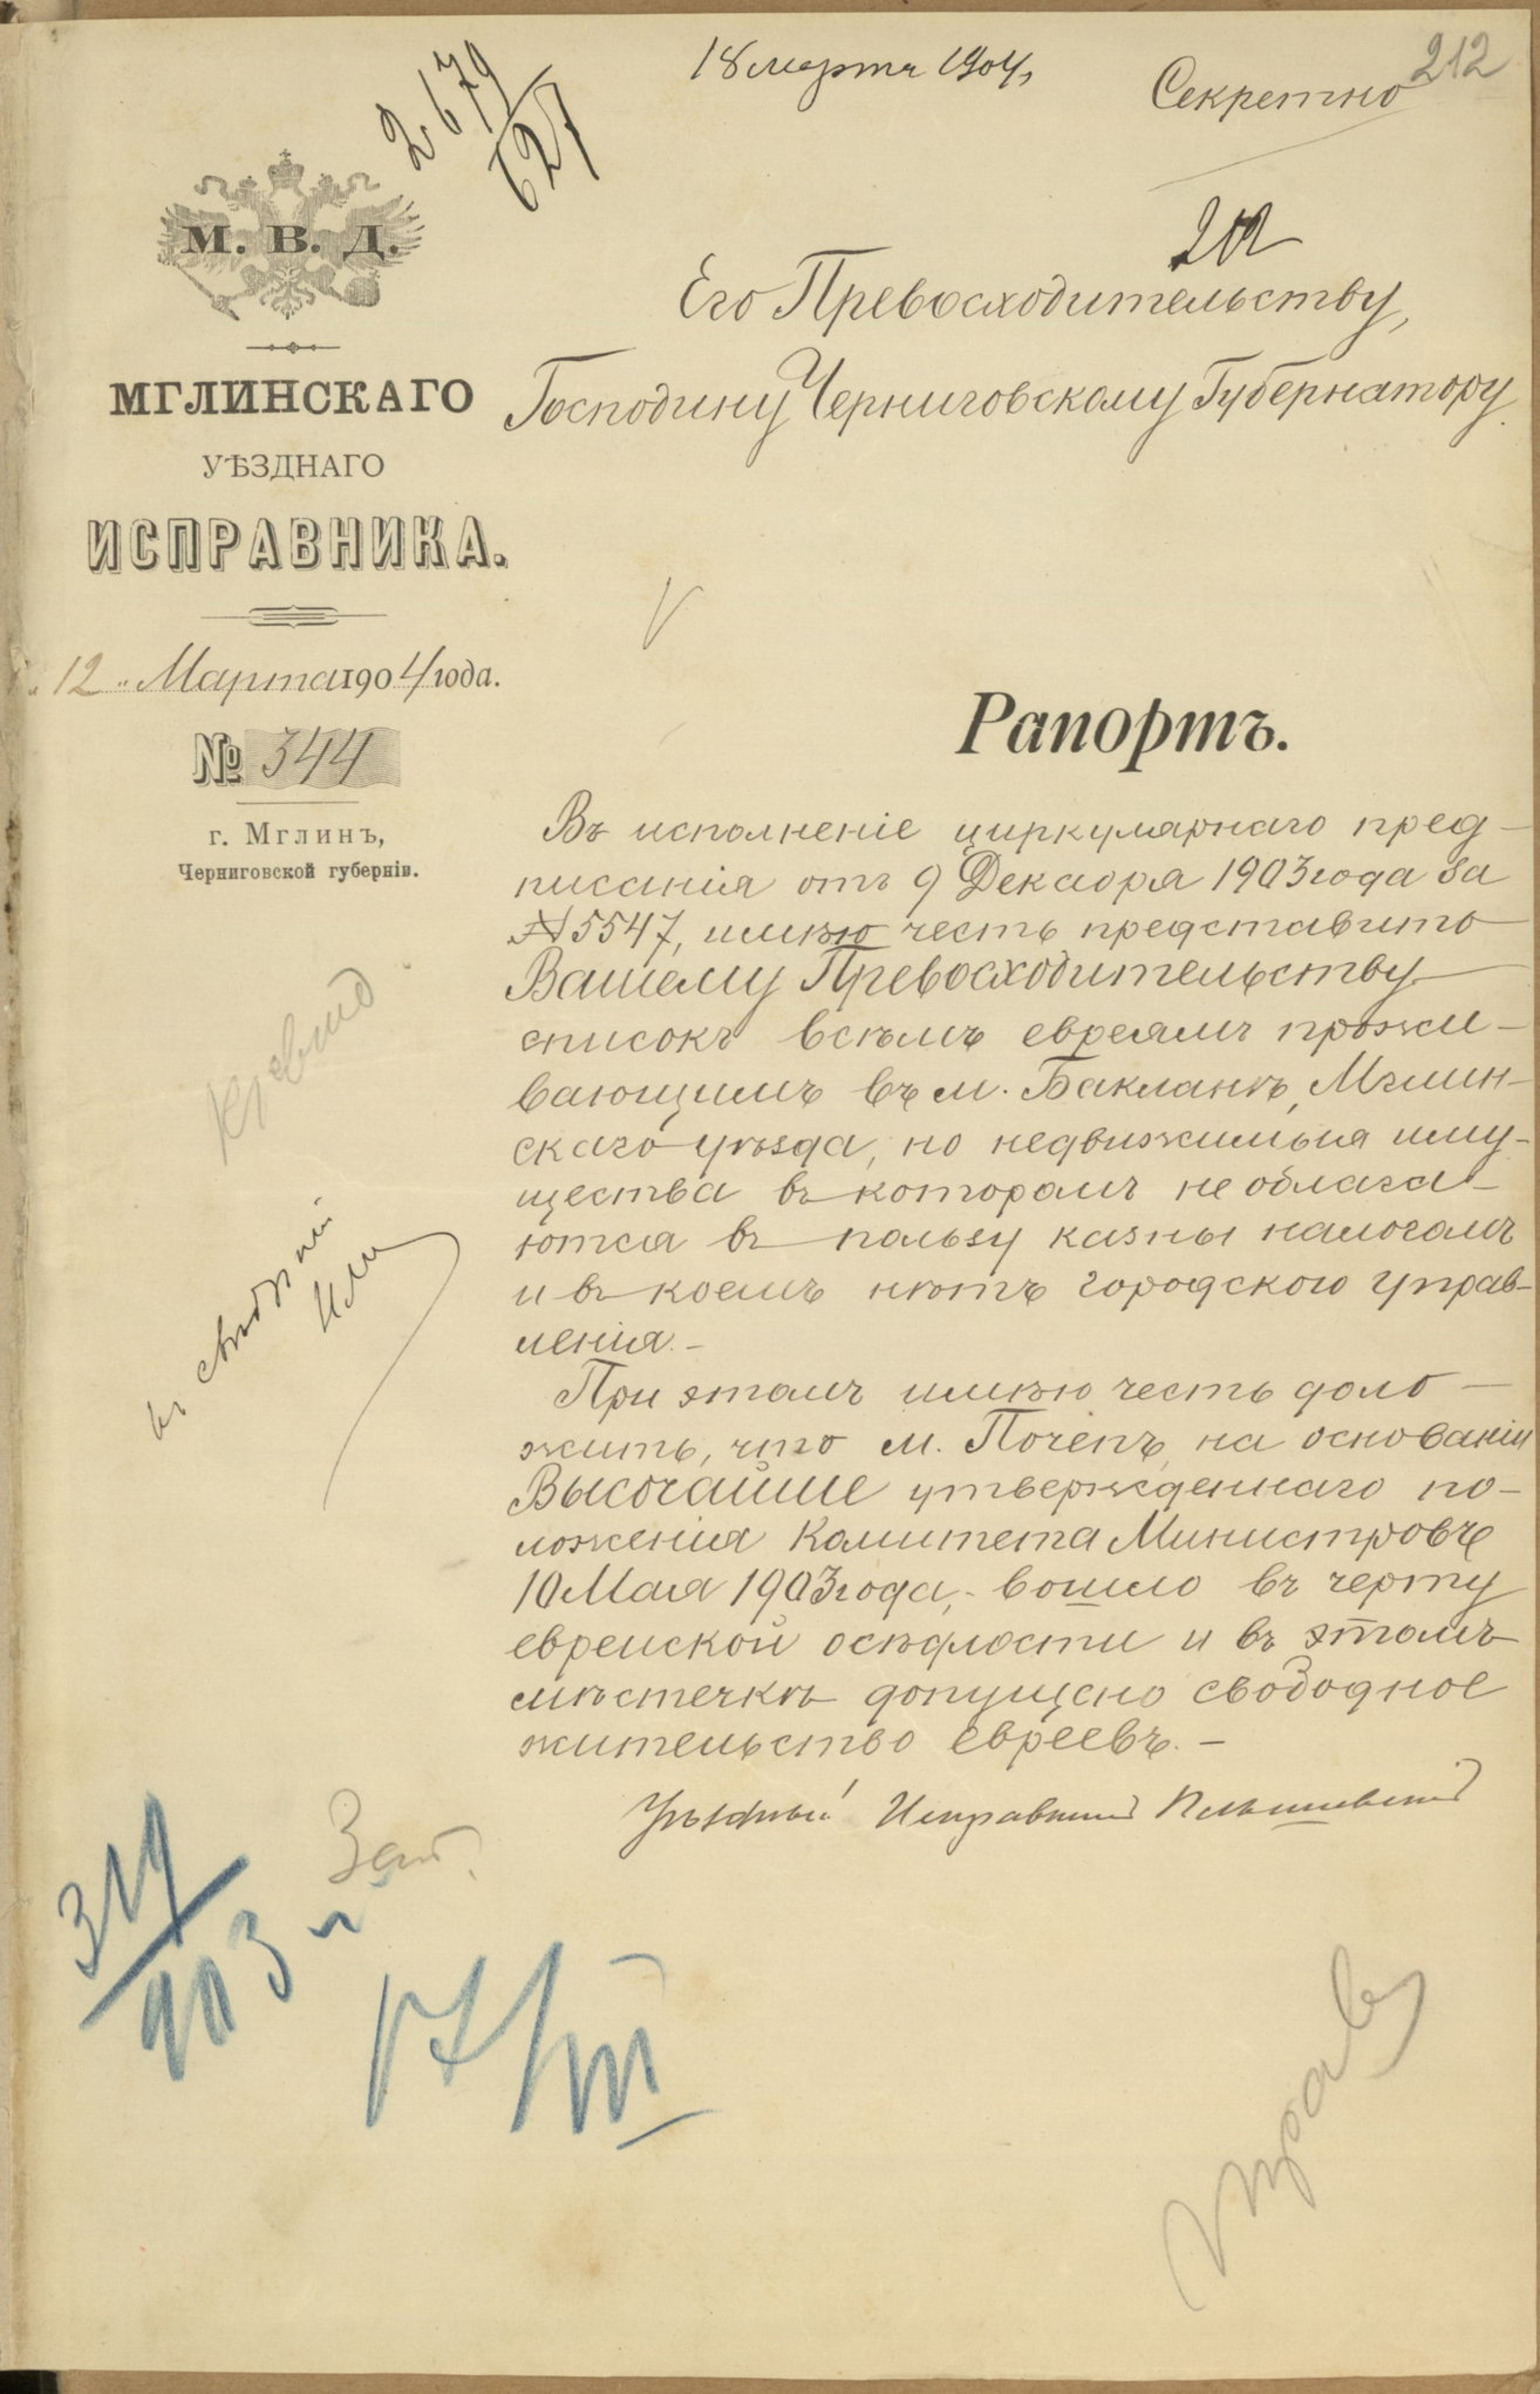 18 марта 1904,
Секретно
212
2679/627
212
М. В. Д.
МГЛИНСКАГО
УѢЗДНАГО
ИСПРАВНИКА.
„12„ Марта 1904 года.
№ 344
г. Мглинъ,
Черниговской губерніи.
Его Превосходительству,
Господину Черниговскому Губернатору.
Рапортъ.
Въ исполненіе циркулярнаго пред-
писанія отъ 9 Декабря 1903 года за
№ 5547, имѣю честь представить
Вашему Превосходительству
списокъ всѣмъ евреямъ прожи-
вающимъ въ м. Бакланѣ, Мглин-
скаго уѣзда, но недвижимыя иму-
щества въ которомъ не облага-
ются въ пользу казны налогомъ
и въ коемъ нѣтъ городского управ-
ленія.-
При этомъ имѣю честь доло-
жить, что м. Почепъ, на основаніи
Высочайше утвержденнаго по-
ложенія Комитета Министровъ
10 Мая 1903 года,- вошло въ черту
еврейской осѣдлости и въ этомъ
мѣстечкѣ допущено свободное
жительство евреевъ.-
Уѣздный Исправникъ
317/903